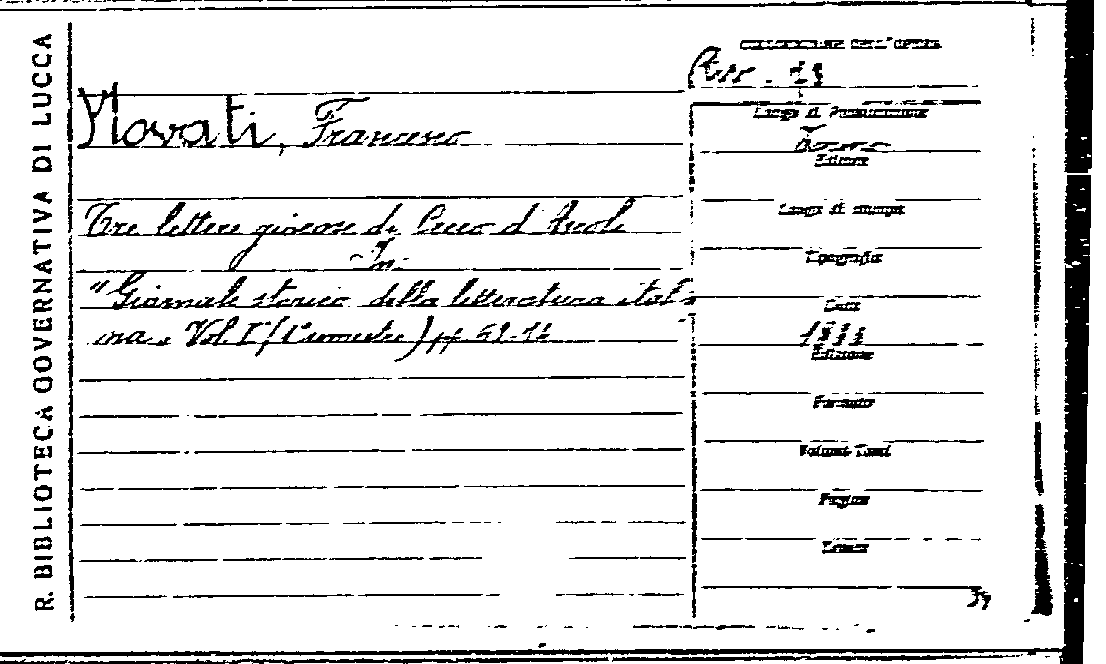 R. BIBLIOTECA GOVERNATIVA DI LUCCA
Novati, Francesco
Tre lettere giocose di Cecco d'Ascoli
In:
"Giornale storico della letteratura italia
na" Vol. I (1° semestre) pp.
COLLOCAZIONE DELL'OPERA
Luogo di Pubblicazione
Torino
Editore
Luogo di stampa
Tipografia
Data
Edizione
Formato
Volumi Tomi
Pagine